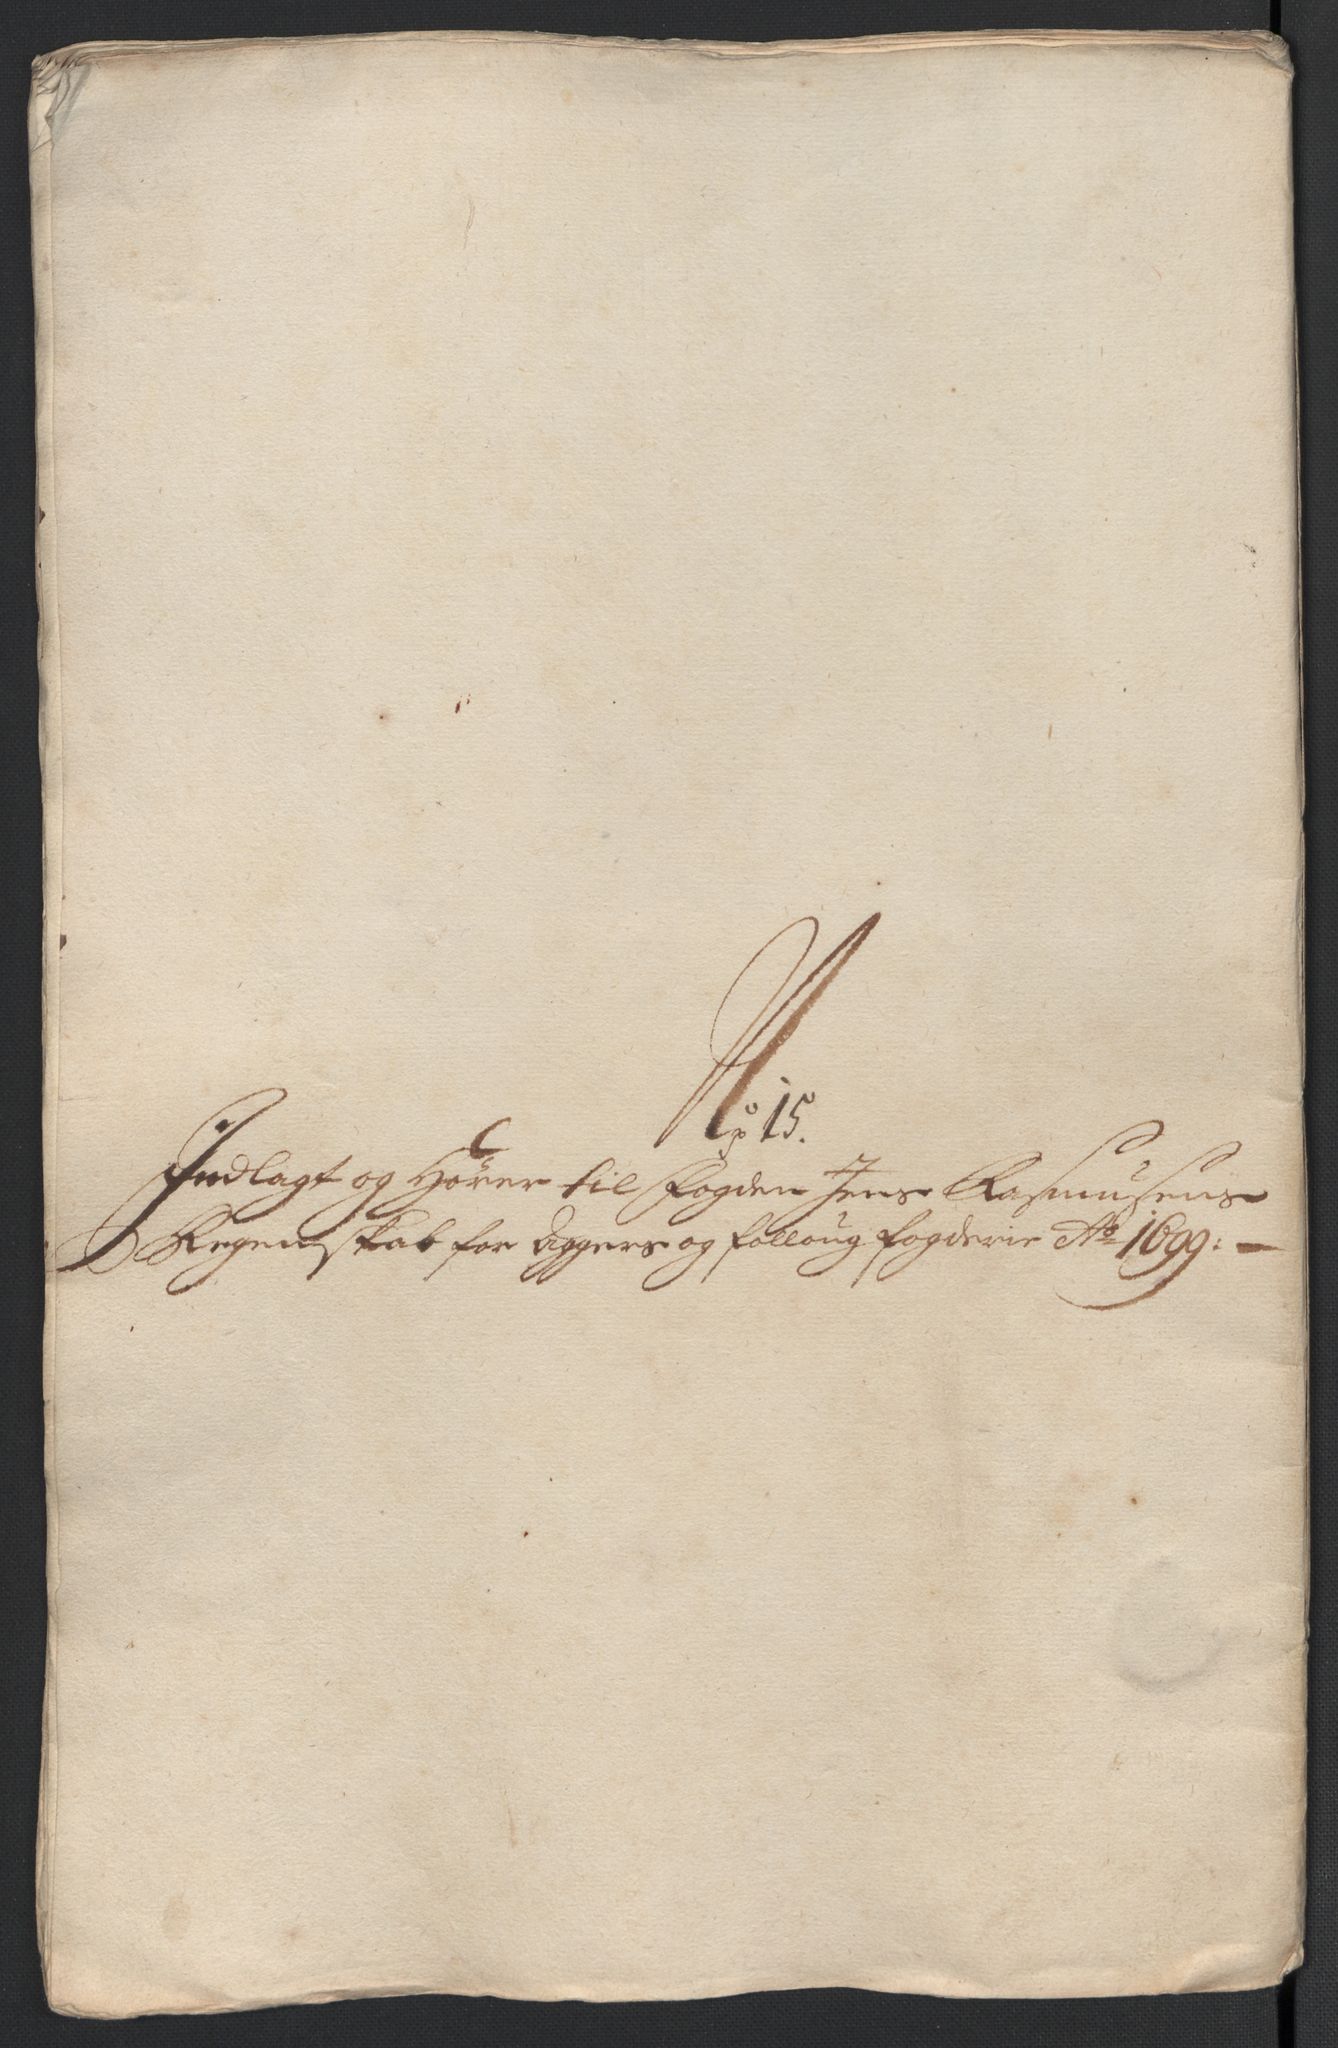 No 15.
Indlagt og Hörer til Fogden Jens Rasmusens
Regenskab for Aggers og Folloug fogderie Ao 1699: